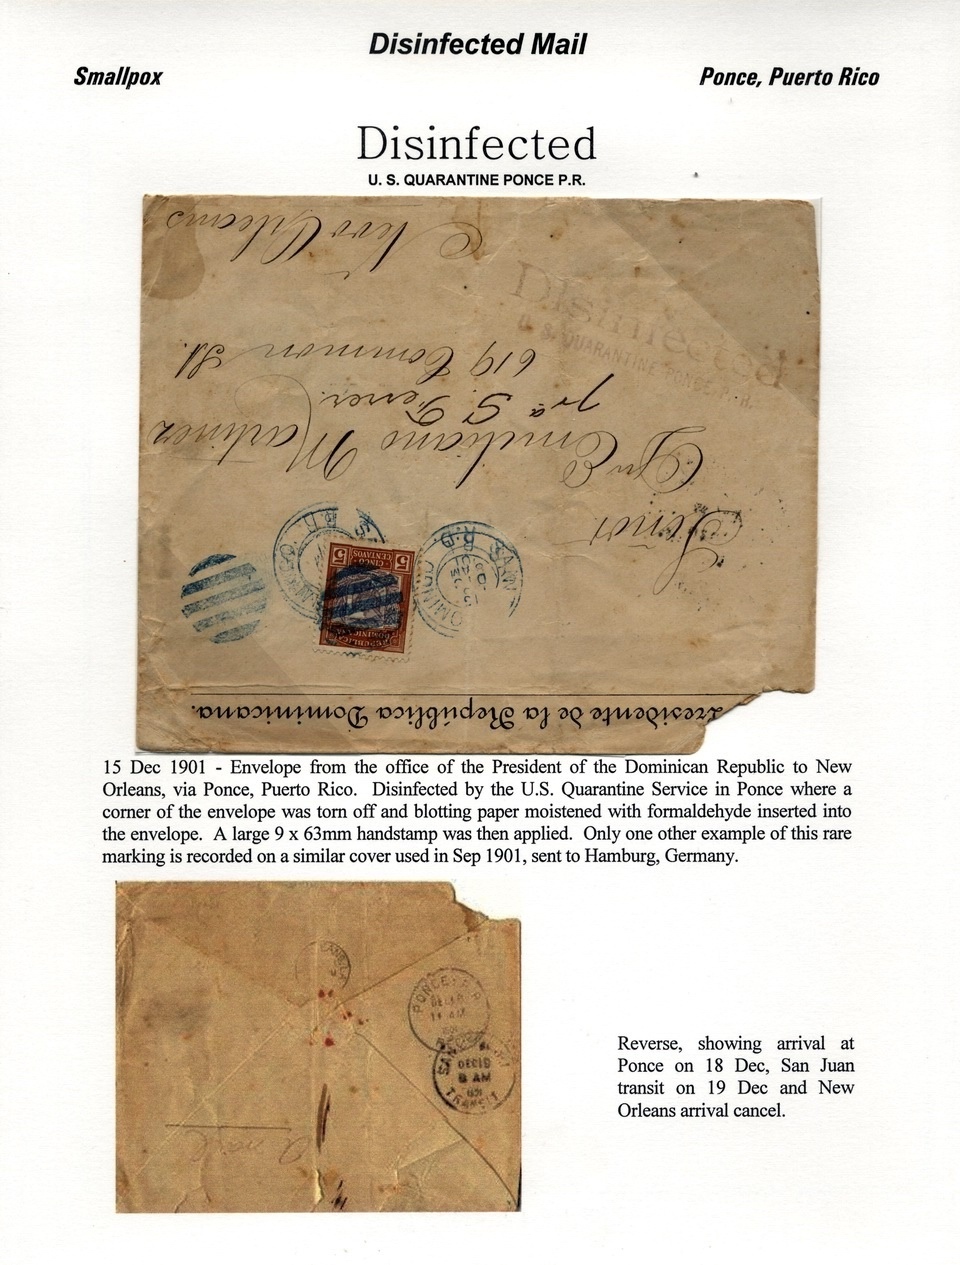 Disinfected Mail
Smallpox
Ponce, Puerto Rico
Disinfected
U. S. QUARANTINE PONCE P.R.
New Orleans
Disinfected
U. S. QUARANTINE PONCE, P. R.
619 Common St.
Emiliano Martinez
Señor
5 CINCO CENTAVOS 5
REPUBLICA DOMINICANA
Presidente de la República Dominicana.
15 Dec 1901 - Envelope from the office of the President of the Dominican Republic to New
Orleans, via Ponce, Puerto Rico. Disinfected by the U.S. Quarantine Service in Ponce where a
corner of the envelope was torn off and blotting paper moistened with formaldehyde inserted into
the envelope. A large 9 x 63mm handstamp was then applied. Only one other example of this rare
marking is recorded on a similar cover used in Sep 1901, sent to Hamburg, Germany.
PONCE P.R.
11 AM
DEC 19
8 AM
TRANSIT
Reverse, showing arrival at
Ponce on 18 Dec, San Juan
transit on 19 Dec and New
Orleans arrival cancel.